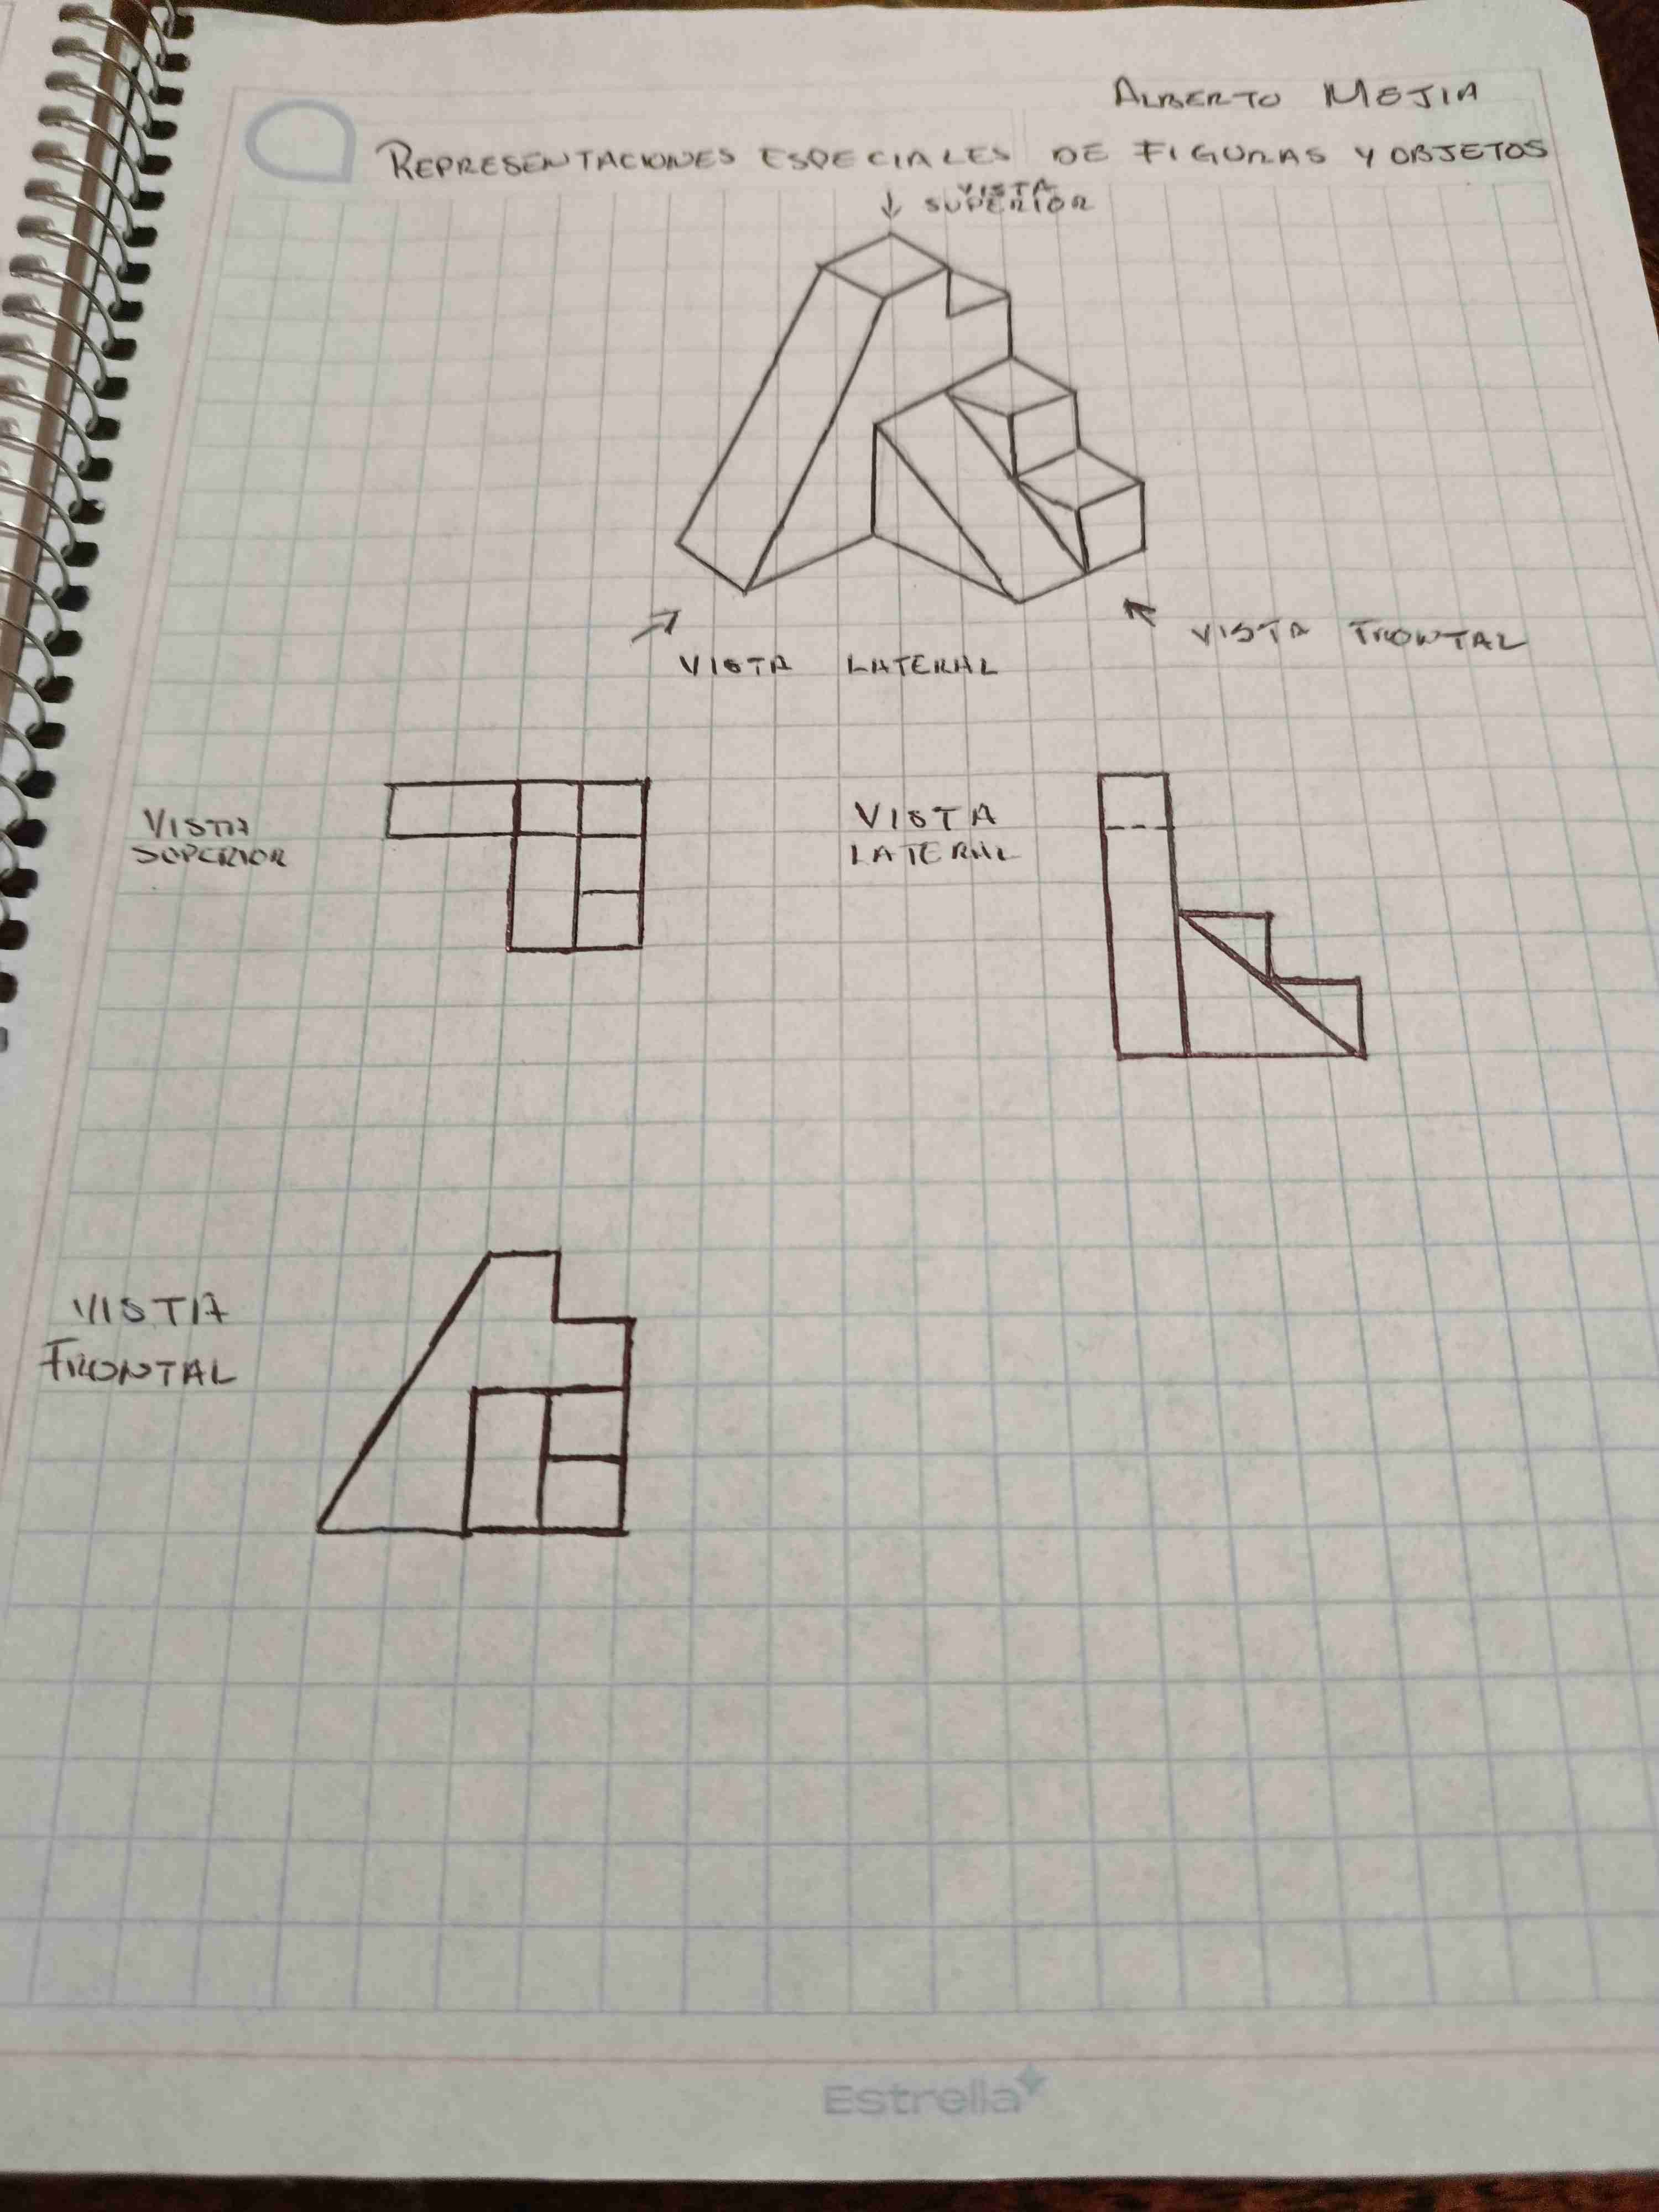 ALBERTO MEJIA
REPRESENTACIONES ESPECIALES DE FIGURAS Y OBJETOS
VISTA
SUPERIOR
VISTA FRONTAL
VISTA LATERAL
VISTA
SUPERIOR
VISTA
LATERAL
VISTA
FRONTAL
Estrella